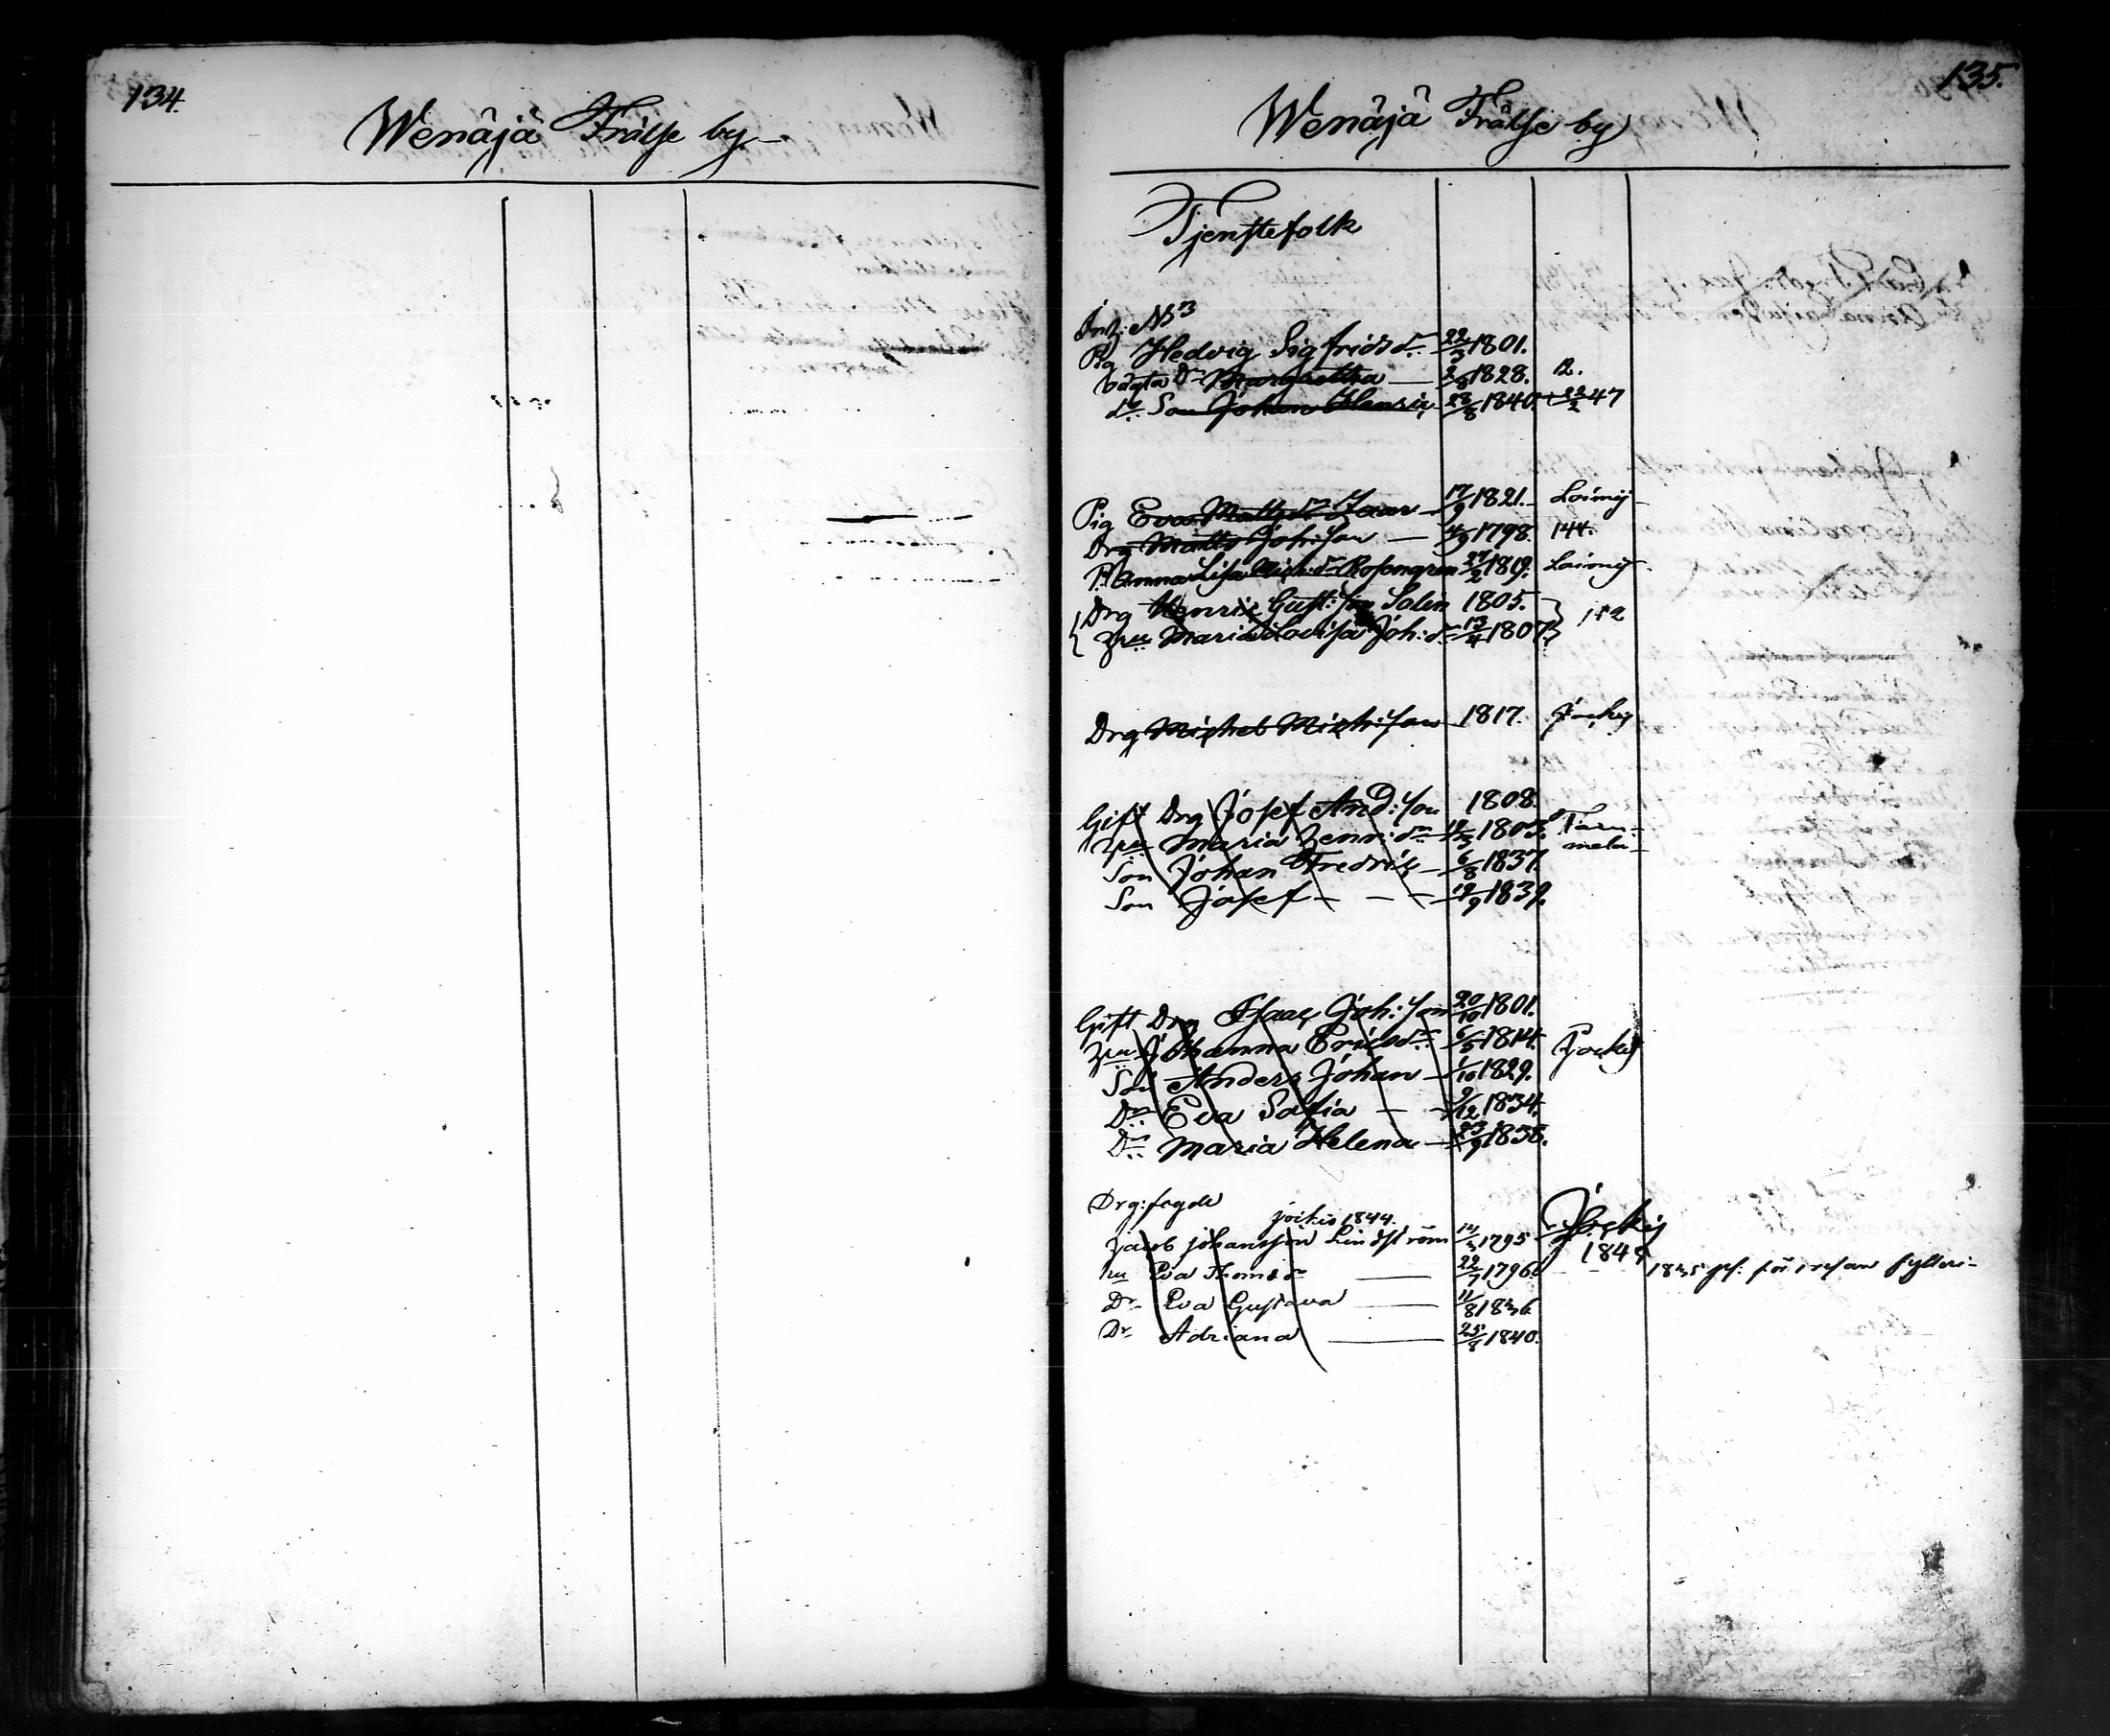 134.
Wenäjä Frälse by
135.
Wenäjä Frälse by
Tjenstefolk
Pig Hedvig Sigfridsdr 22/3 1801.
oägta Dr Margretha — 2/8 1828. 12.
do Son Johan Henric 28/8 1840. † 23/2 47
Pig Eva Mattsdr 17/9 1821. Loimij
Drg Matts Joh:son — 4/9 1798. 144.
P. Anna Lisa Mich:dr Rosengren 27/2 1819. Loimij
Drg Henric Gust:son Solin 1805.
Hu Maria Lovisa Joh:dr 13/4 1807. 112
Drg Michel Mich:son 1817. Jockij
Gift Drg Josef And:son 1808.
Hu Maria Henr:dr 19/3 1803. Tam-
mela
Son Johan Fredric 6/8 1837.
Son Josef — 19/9 1839.
Gift Drg Isaac Joh:son 20/10 1801.
Hu Johanna Ericsdr 6/5 1814. Jockij
Son Anders Johan 1/10 1829.
Dr Eva Sofia — 9/12 1834.
Dr Maria Helena 23/9 1838.
Drg:fogde
jockis 1844.
Jacob Johansson Lindström 14/3 1795 Jockij
1845
Hu Eva Thomsdr — 22/7 1796
1835 pl. för resan fylleri
Dr Eva Gustava — 11/8 1836
Dr Adriana — 25/8 1840.